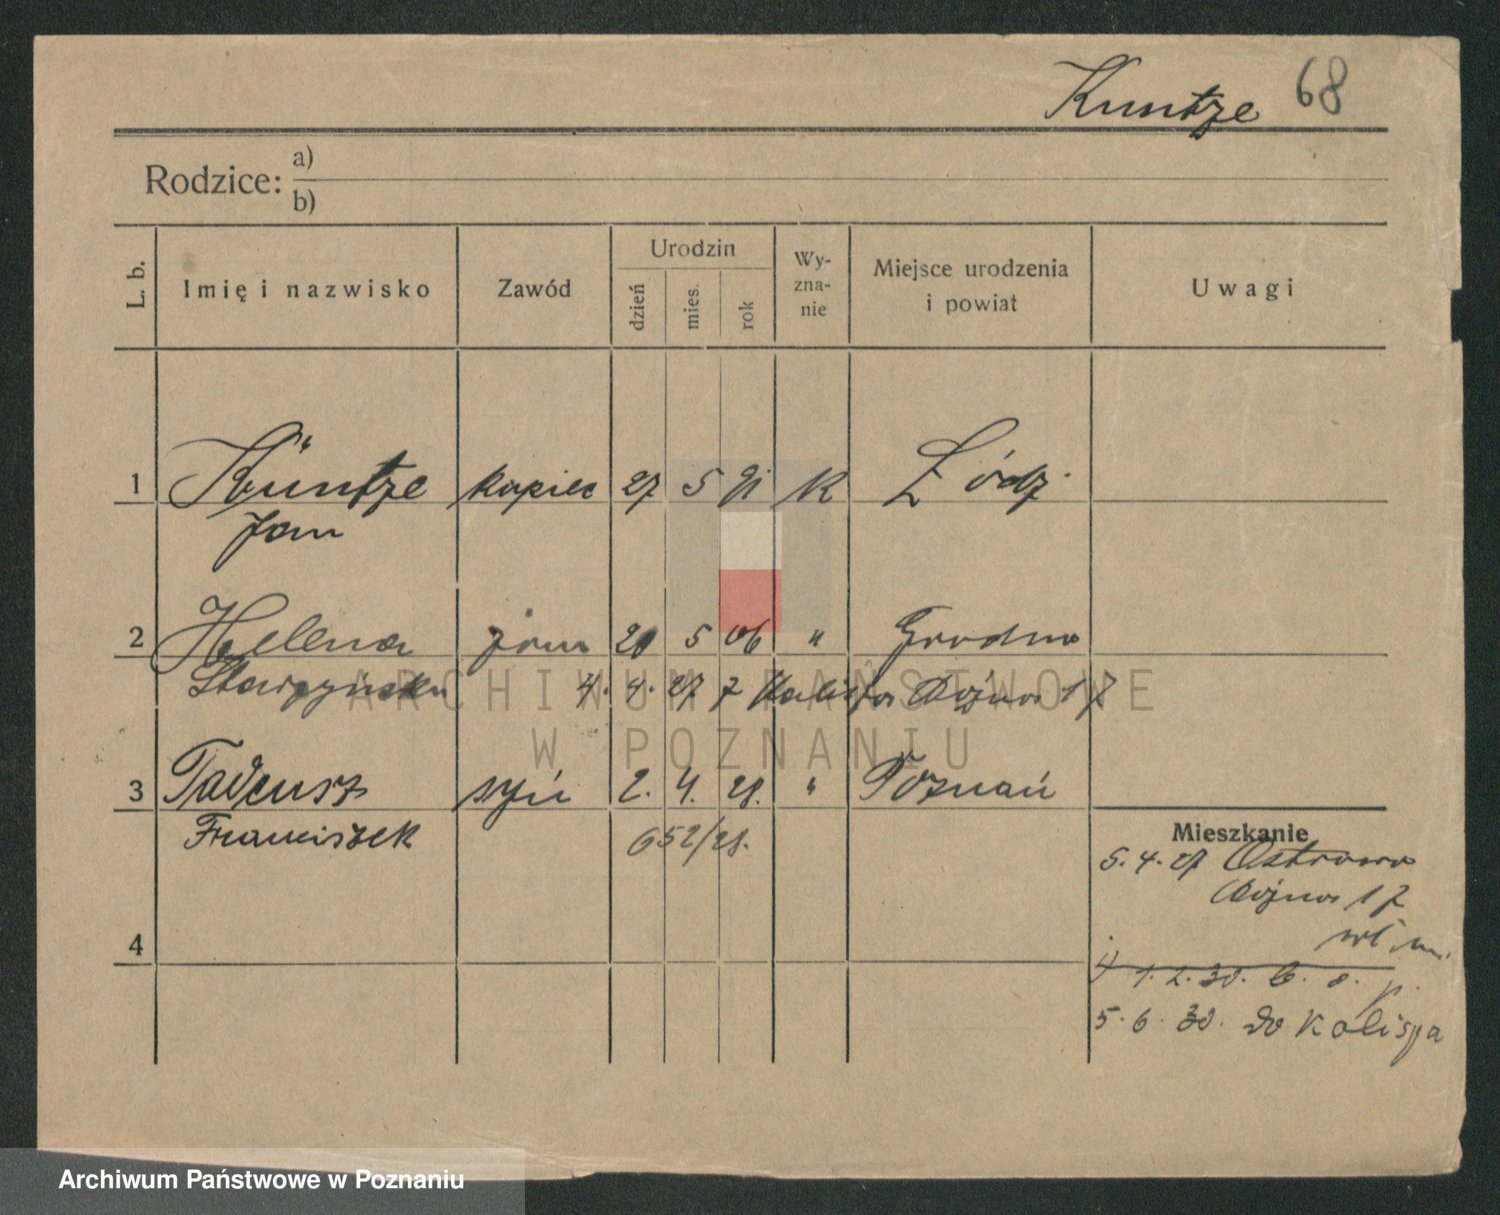 Kuntze 68
Rodzice: a)
b)
L. b. Imię i nazwisko Zawód Urodzin dzień mies. rok Wy-zna-nie Miejsce urodzenia i powiat Uwagi
1 Küntze kupiec 27 5 91 K Łódź
Jan
2 Helena żona 5 06 " Grodno
4. 4. 27 z Kalisza 17
ARCHIWUM PAŃSTWOWE
W POZNANIU
3 Tadeusz syn 2. 4. 28. " Poznań
Franciszek 652/28.
Mieszkanie
5. 4. 27 Ostrowo
17
4
1. 2. 30.
5. 6. 30. do Kalisza
Archiwum Państwowe w Poznaniu